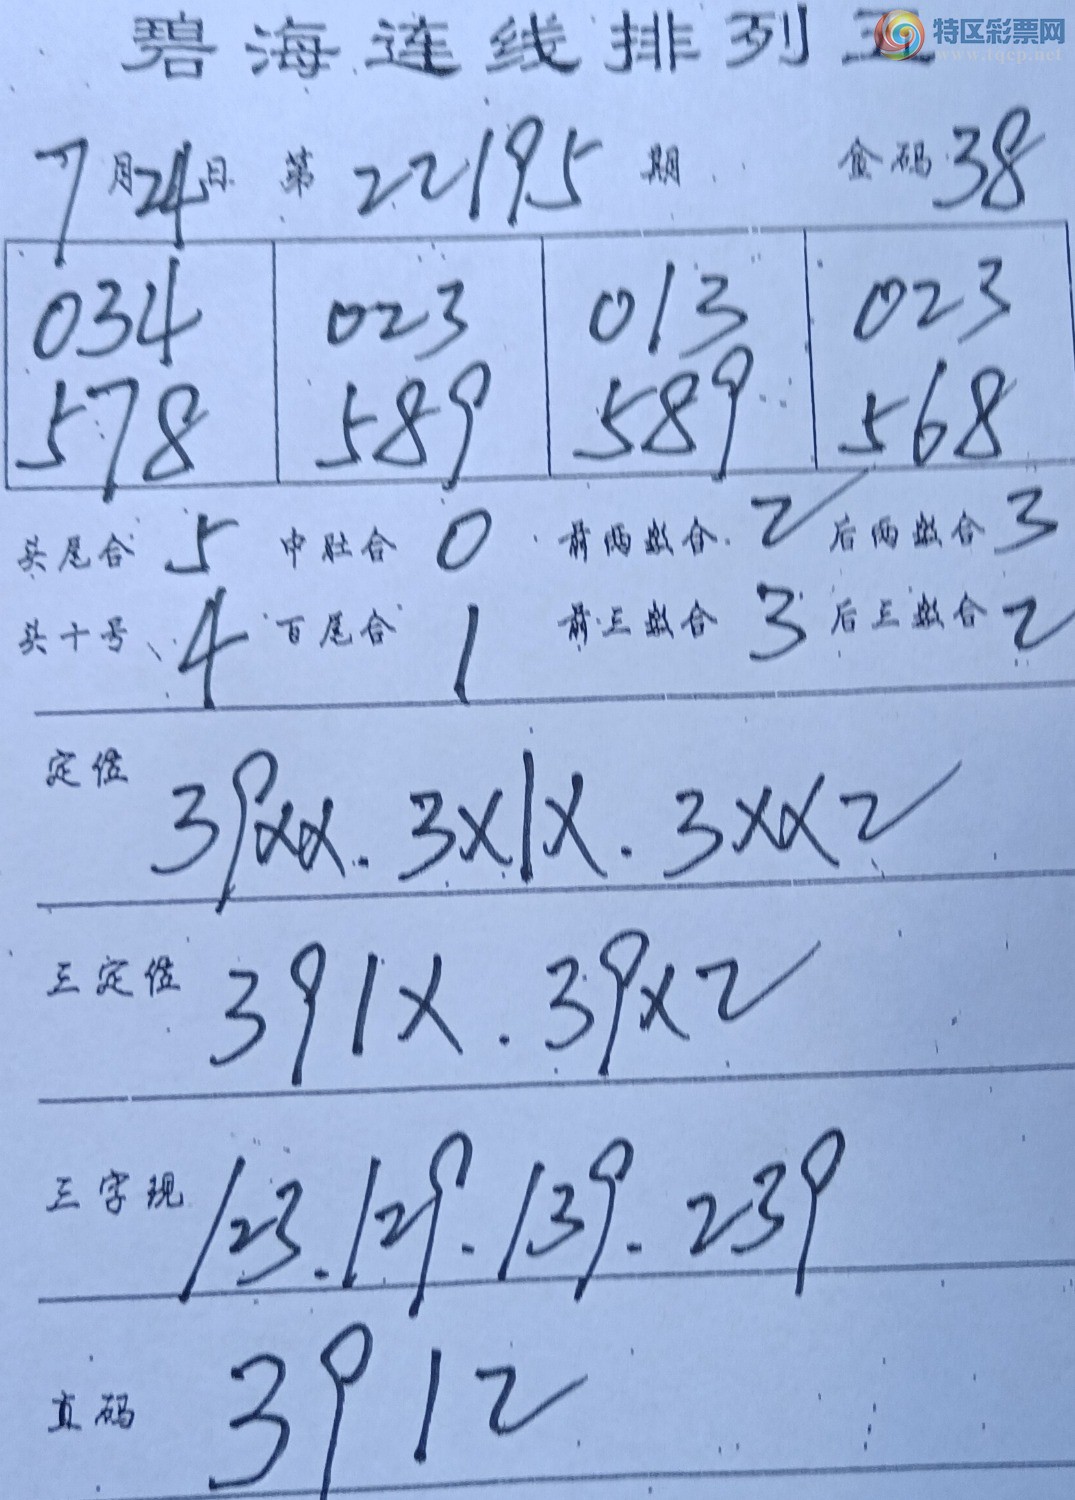 碧海连线排列五
特区彩票网
www.tqcp.net
7月24日 第22195期 金码38
034 023 013 023
578 589 589 568
头尾合 5 中肚合 0 前两数合 2 后两数合 3
头十号 4 百尾合 1 前三数合 3 后三数合 2
定位 39XX.3X1X.3XX2
三定位 391X.39X2
三字现 123.129.139.239
直码 3912